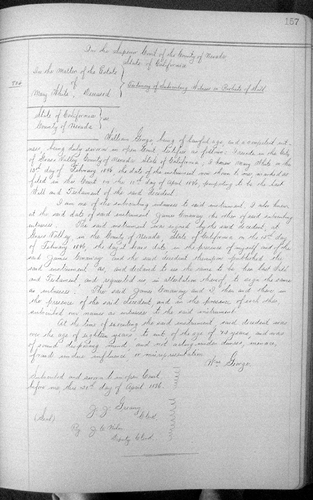 157
In the Superior Court of the County of Nevada
State of California
In the Matter of the Estate
of
Mary White, Deceased
Testimony of Subscribing Witness on Probate of Will
State of California
County of Nevada
ss
William George being of lawful age, and a competent wit-
ness, being duly sworn in open Court, testifies as follows: I reside in the City
of Grass Valley County of Nevada State of California. I knew Mary White on the
day of February 1886, the date of the instrument now shown to me marked as
filed in this Court on the day of April 1886, purporting to be the last
Will and Testament of the said decedent.
I am one of the subscribing witnesses to said instrument. I also knew,
at the said date of said instrument, James the other of said subscribing
witnesses. The said instrument was signed by the said decedent, at
Grass Valley, in the County of Nevada State of California on the day
of February 1886, the day it bears date, in the presence of myself and of the
said James and the said decedent thereupon published the
said instrument as, and declared to us the same to be her last Will
and Testament, and requested us in attestation thereof to sign the same
as witnesses. The said James and I then and there in
the presence of the said decedent, and in the presence of each other
subscribed our names as witnesses to the said instrument.
At the time of executing the said instrument, said decedent was
over the age of eighteen years, to wit of the age of years, and was
of sound disposing mind and not acting under duress, menace,
fraud, undue influence or misrepresentation.
Wm George
Subscribed and sworn to in open Court
before me this day of April 1886.
Clerk
(Seal)
By
Deputy Clerk